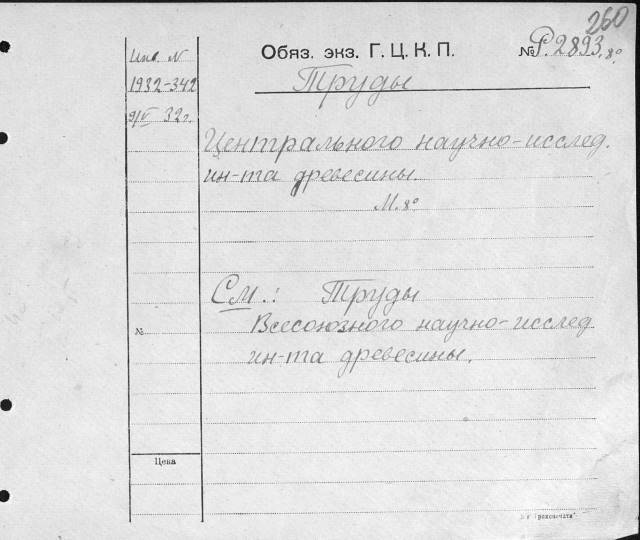 260
Обяз. экз. Г. Ц. К. П.
№ Р. 2893. 8°
Инв. N
1932-342
9/V 32 г.
Труды
Центрального научно-исслед.
ин-та древесины
М. 8°
См.: Труды
Всесоюзного научно-исслед
ин-та древесины.
№
Цена